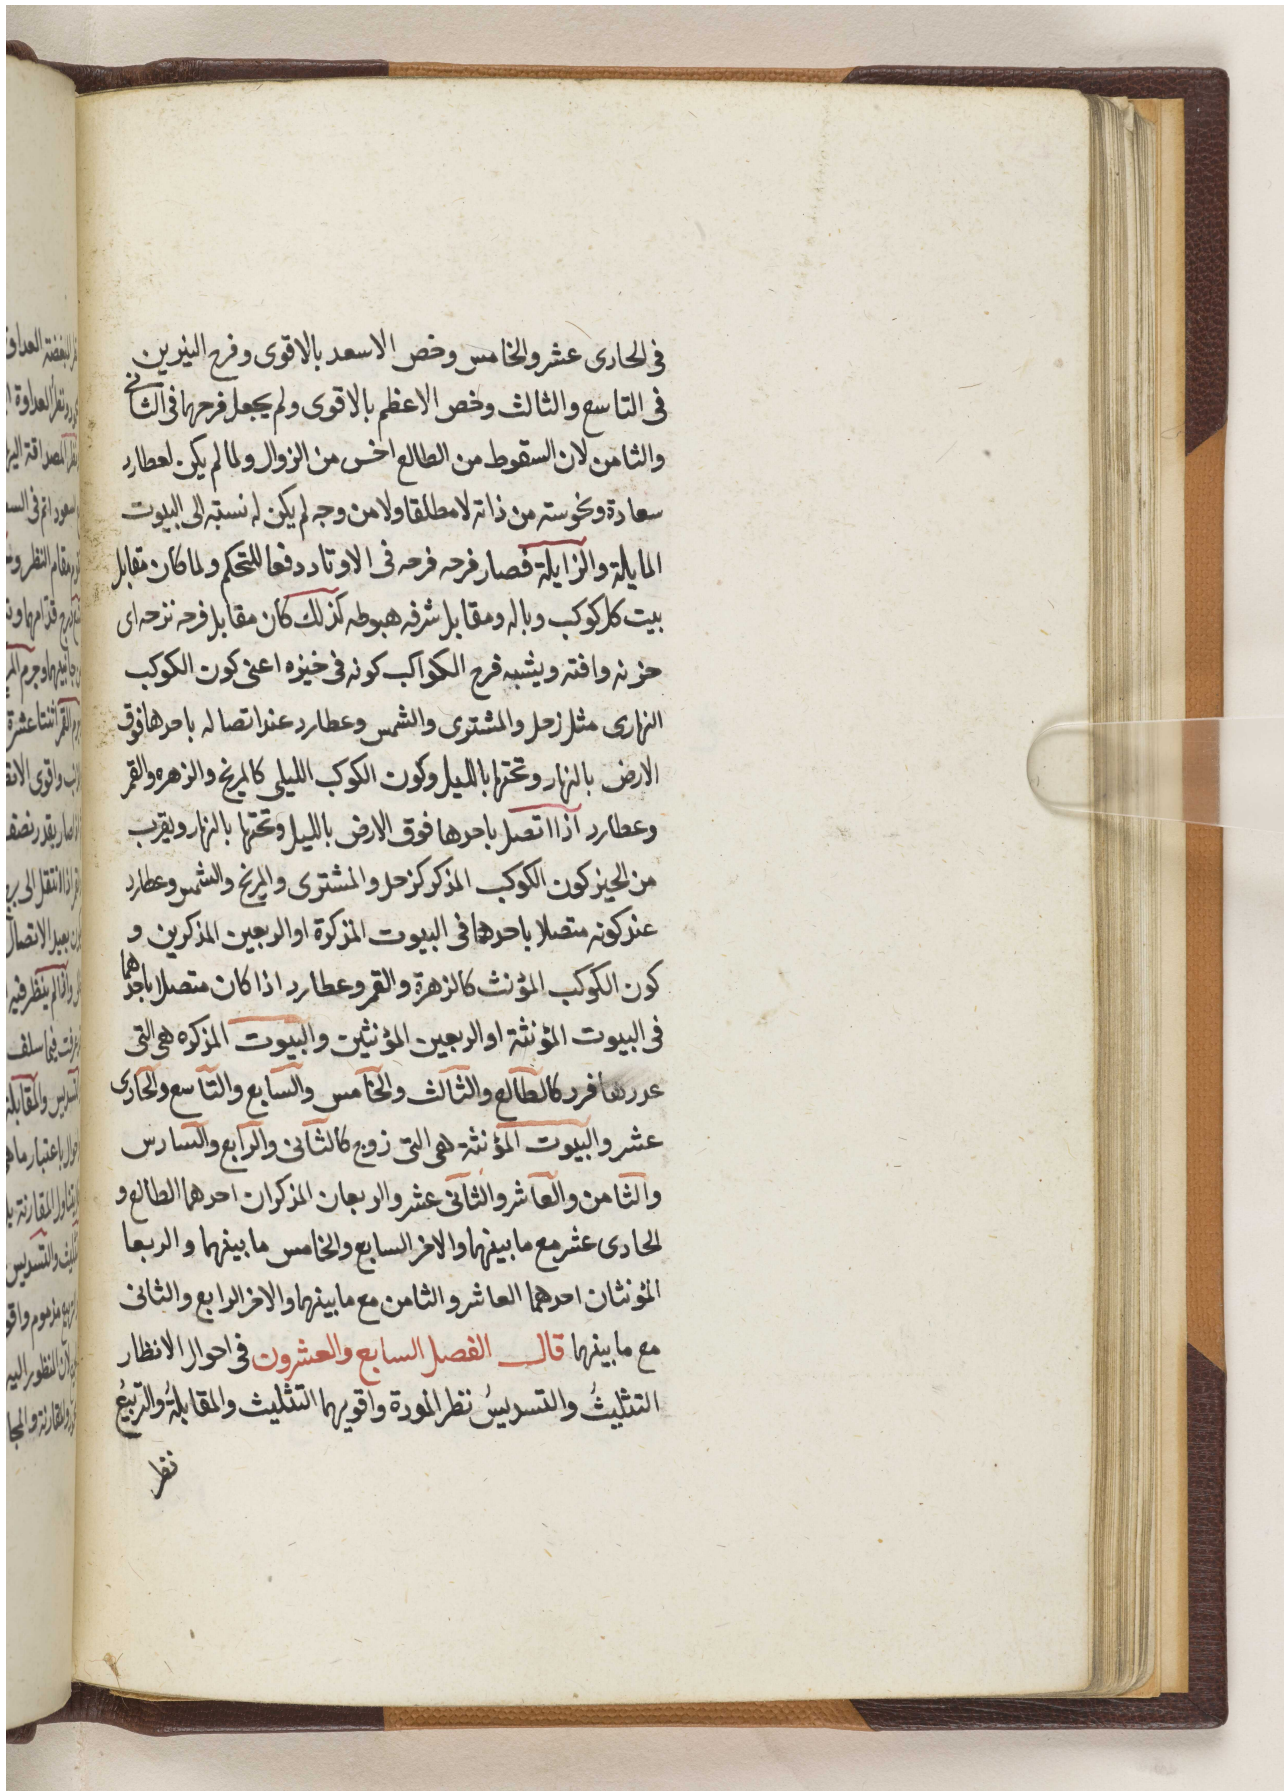 فى الحادى عشر والخامس وخص الاسعد بالاقوى وفرح النيرين
فى التاسع والثالث وخص الاعظم بالاقوى ولم يجعل فرحهما فى الثانى
والثامن لان السقوط من الطالع اخس من الزوال ولما لم يكن لعطارد
سعادة ونحوسته من ذاته لا مطلقا ولا من وجه لم يكن له نسبته الى البيوت
المايلة والزايلة فصار فرحه فرحه فى الاوتاد دفعا للتحكم ولما كان مقابل
بيت كل كوكب وباله ومقابل شرفه هبوطه كذلك كان مقابل فرحه نزحه اى
حزنه وافته ويشبه فرح الكواكب كونه فى خيزه اعنى كون الكوكب
النهارى مثل زحل والمشترى والشمس وعطارد عند اتصاله باحدها فوق
الارض بالنهار وتحتها بالليل وكون الكوكب الليلى كالمريخ والزهره والقمر
وعطارد اذا اتصل باحدها فوق الارض بالليل وتحتها بالنهار ويقرب
من الحيز كون الكوكب المذكر كزحل والمشترى والمريخ والشمس وعطارد
عند كونه متصلا باحدهما فى البيوت المذكرة او الربعين المذكرين و
كون الكوكب المؤنث كالزهرة والقمر وعطارد اذا كان متصلا باحدهما
فى البيوت المؤنثة او الربعين المؤنثين والبيوت المذكره هى التى
عددها فرد كالطالع والثالث والخامس والسابع والتاسع والحادى
عشر والبيوت المؤنثة هى التى زوج كالثانى والرابع والسادس
والثامن والعاشر والثانى عشر والربعان المذكران احدهما الطالع و
الحادى عشر مع ما بينهما والاخر السابع والخامس ما بينهما والربعا
المؤنثان احدهما العاشر والثامن مع ما بينهما والاخر الرابع والثانى
مع ما بينهما قال الفصل السابع والعشرون فى احوال الانظار
التثليثُ والتسديسُ نظر المودة واقويهما التثليث والمقابلةُ والتربيعُ
نظر